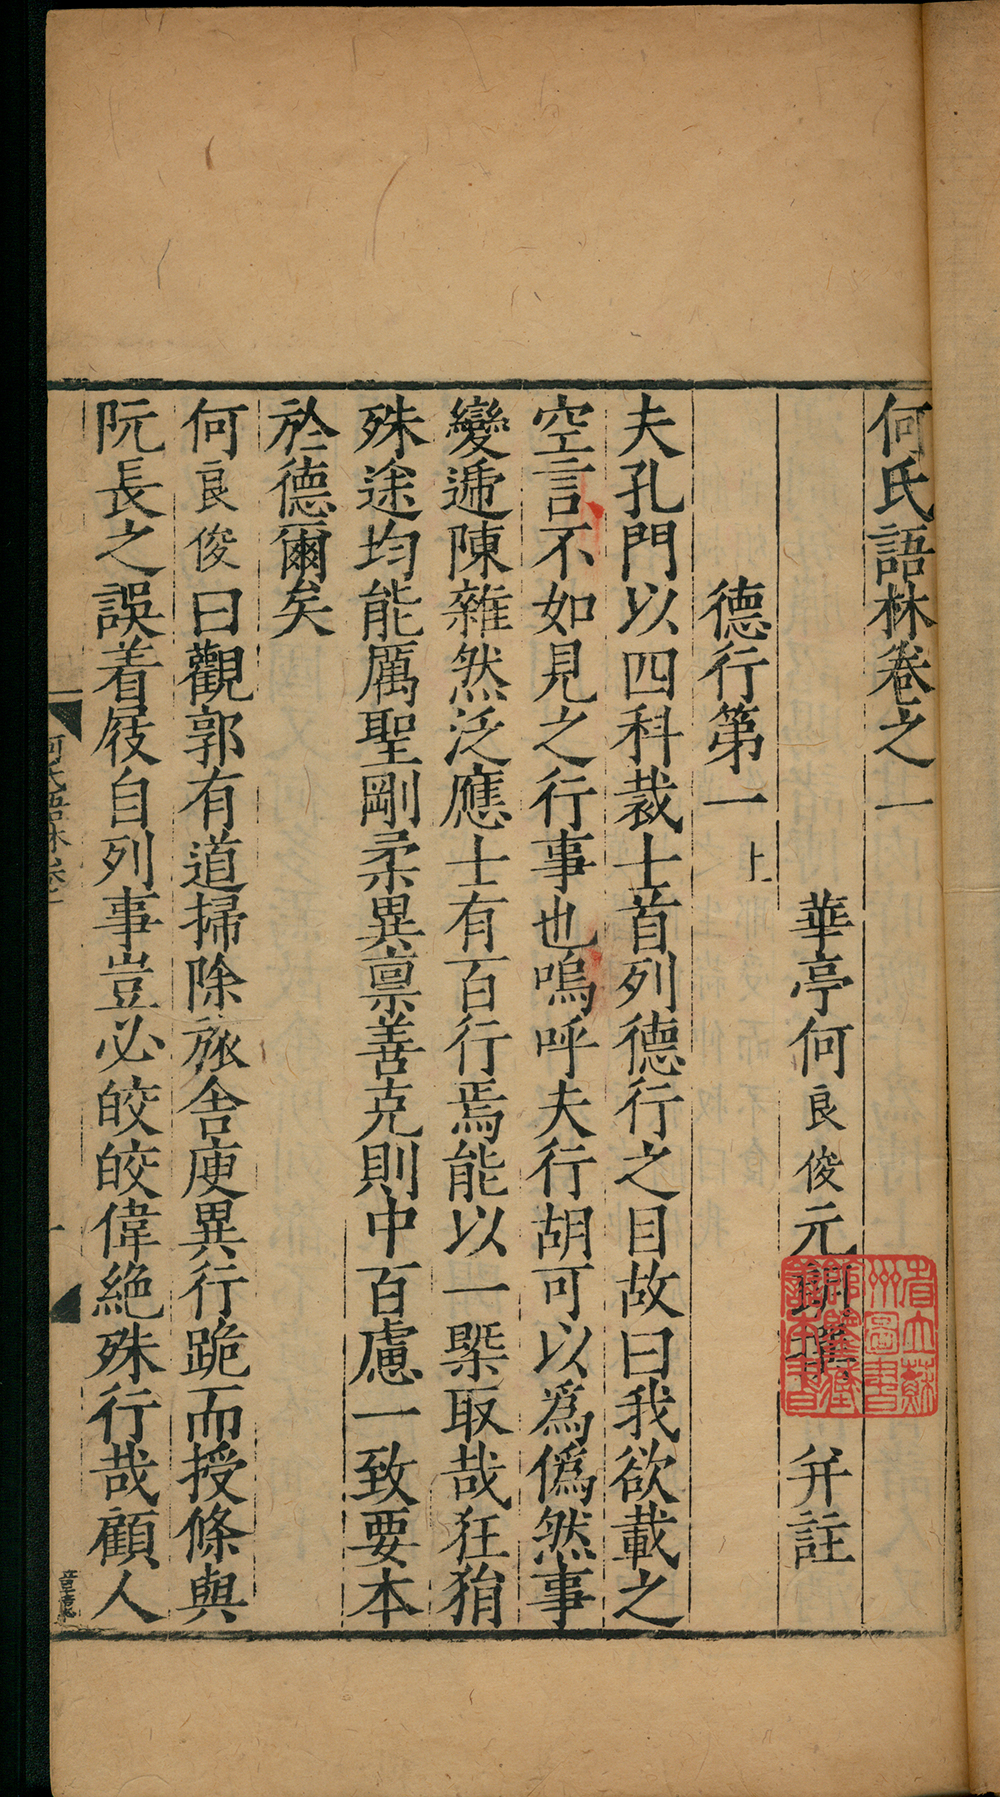 何氏語林卷之一
華亭何良俊元朗撰 并註
德行第一 上
夫孔門以四科裁士首列德行之目故曰我欲載之
空言不如見之行事也嗚呼夫行胡可以爲僞然事
變遞陳雜然泛應士有百行焉能以一槩取哉狂狷
殊途均能厲聖剛柔異禀善克則中百慮一致要本
於德爾矣
何良俊曰觀郭有道掃除旅舍庾異行跪而授條與
阮長之誤着屐自列事豈必皎皎偉絶殊行哉顧人
何氏語林卷一
一